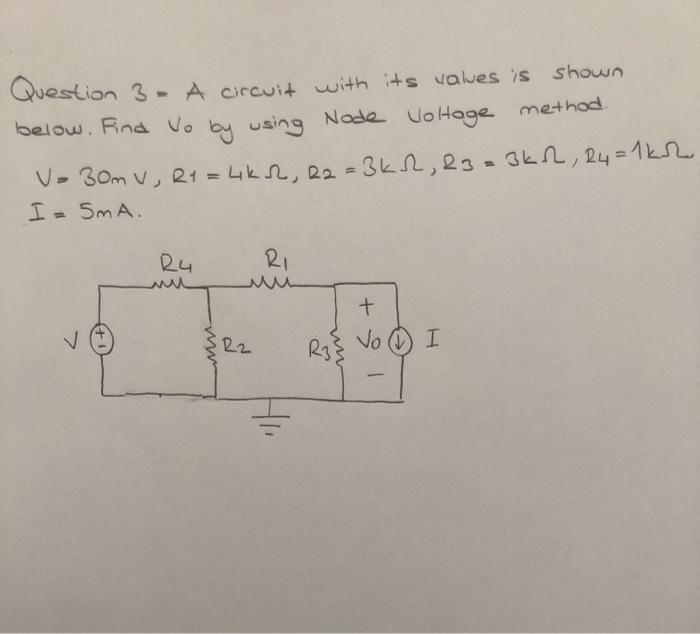 Question 3 - A circuit with its values is shown
below. Find Vo by using Node Voltage method.
V = 30m V, R1 = 4k Ω, R2 = 3k Ω, R3 = 3k Ω, R4 = 1k Ω
I = 5mA.
R4 R1
+
V + - R2 R3 Vo I
-